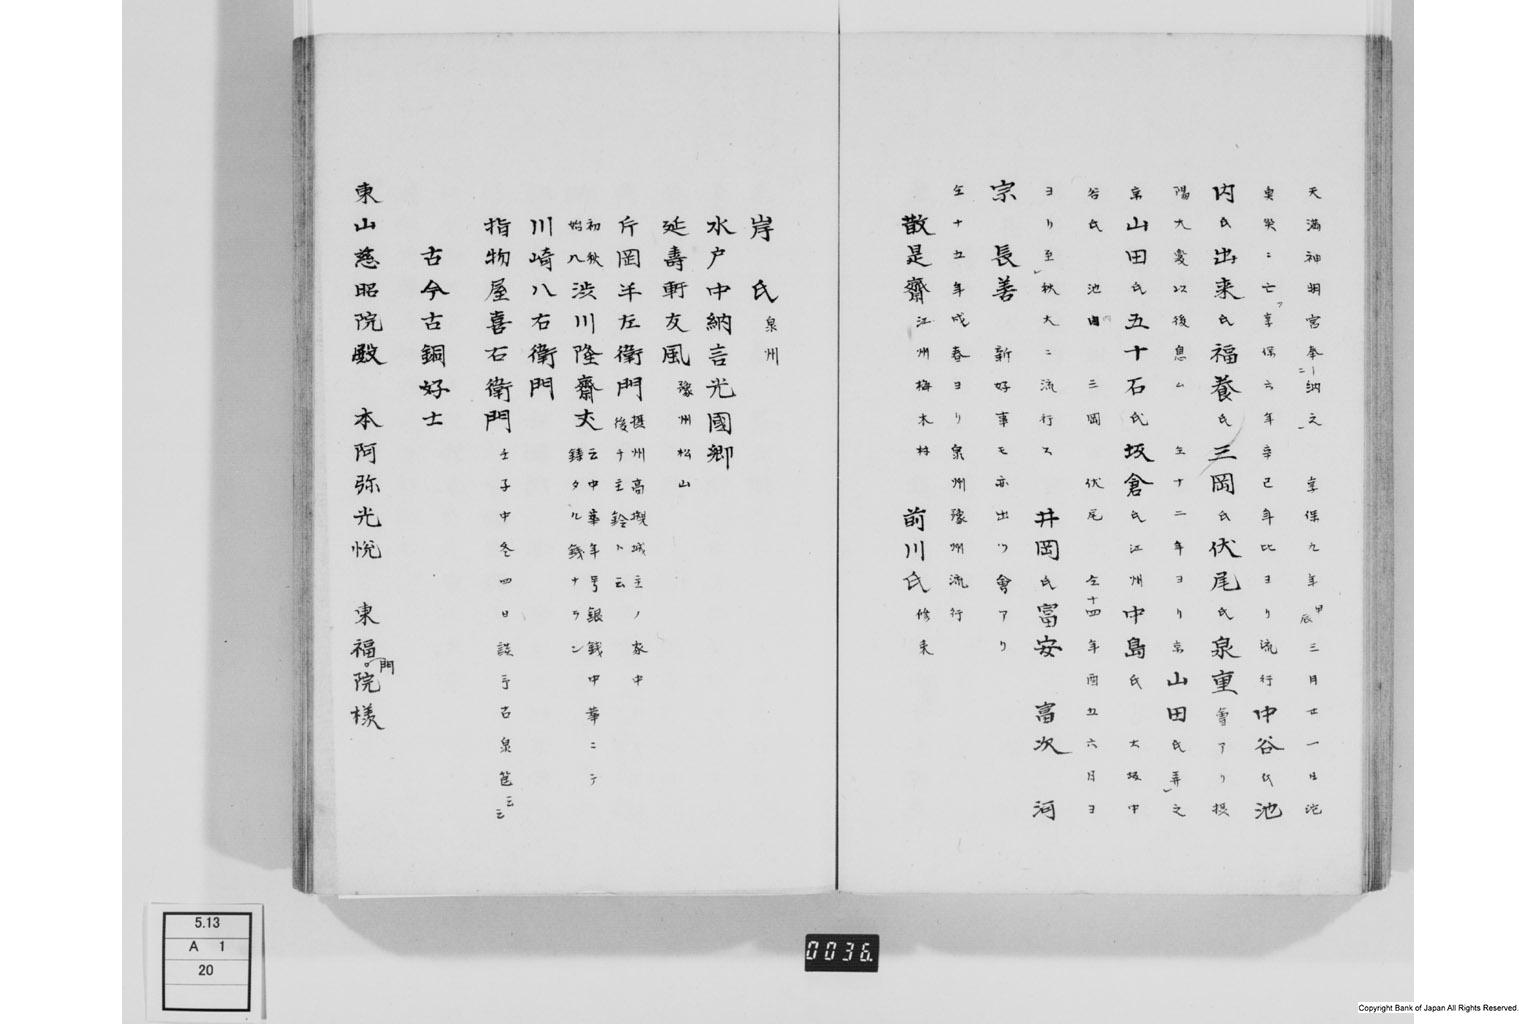 天満神明宮奉納之 享保九年甲辰三月廿一日池
奥災ニ亡ァ享保六年辛巳年比ヨリ流行中谷氏池
内氏出来氏福養氏三岡氏伏尾氏泉重會アリ摂
陽大変以後息ム 仝十二年ヨリ京山田氏弄之
京山田氏五十石氏坂倉氏江州中島氏 大坂中
谷氏 池内 三岡 伏尾 仝十四年酉五六月ヨ
ヨリ至秋大ニ流行ス 井岡氏富安 富次 河
宗 長善 新好事モ亦出ツ會アリ
仝十五年戌春ヨリ泉州豫州流行
散是齋江州梅木村 前川氏修来
岸 氏泉州
水戸中納言光國卿
延壽軒友風豫州松山
斤岡半左衛門摂州高槻城主ノ家中後チ主鈴ト云
初秋始八渋川隆齋丈云中華年号銀銭中華ニテ鋳タル銭ナラン
川崎八右衛門
指物屋喜右衛門壬子中冬四日談予古泉筥云云
古今古銅好士
東山慈昭院殿 本阿弥光悦 東福門院様
5.13
A 1
20
0036.
Copyright Bank of Japan All Rights Reserved.